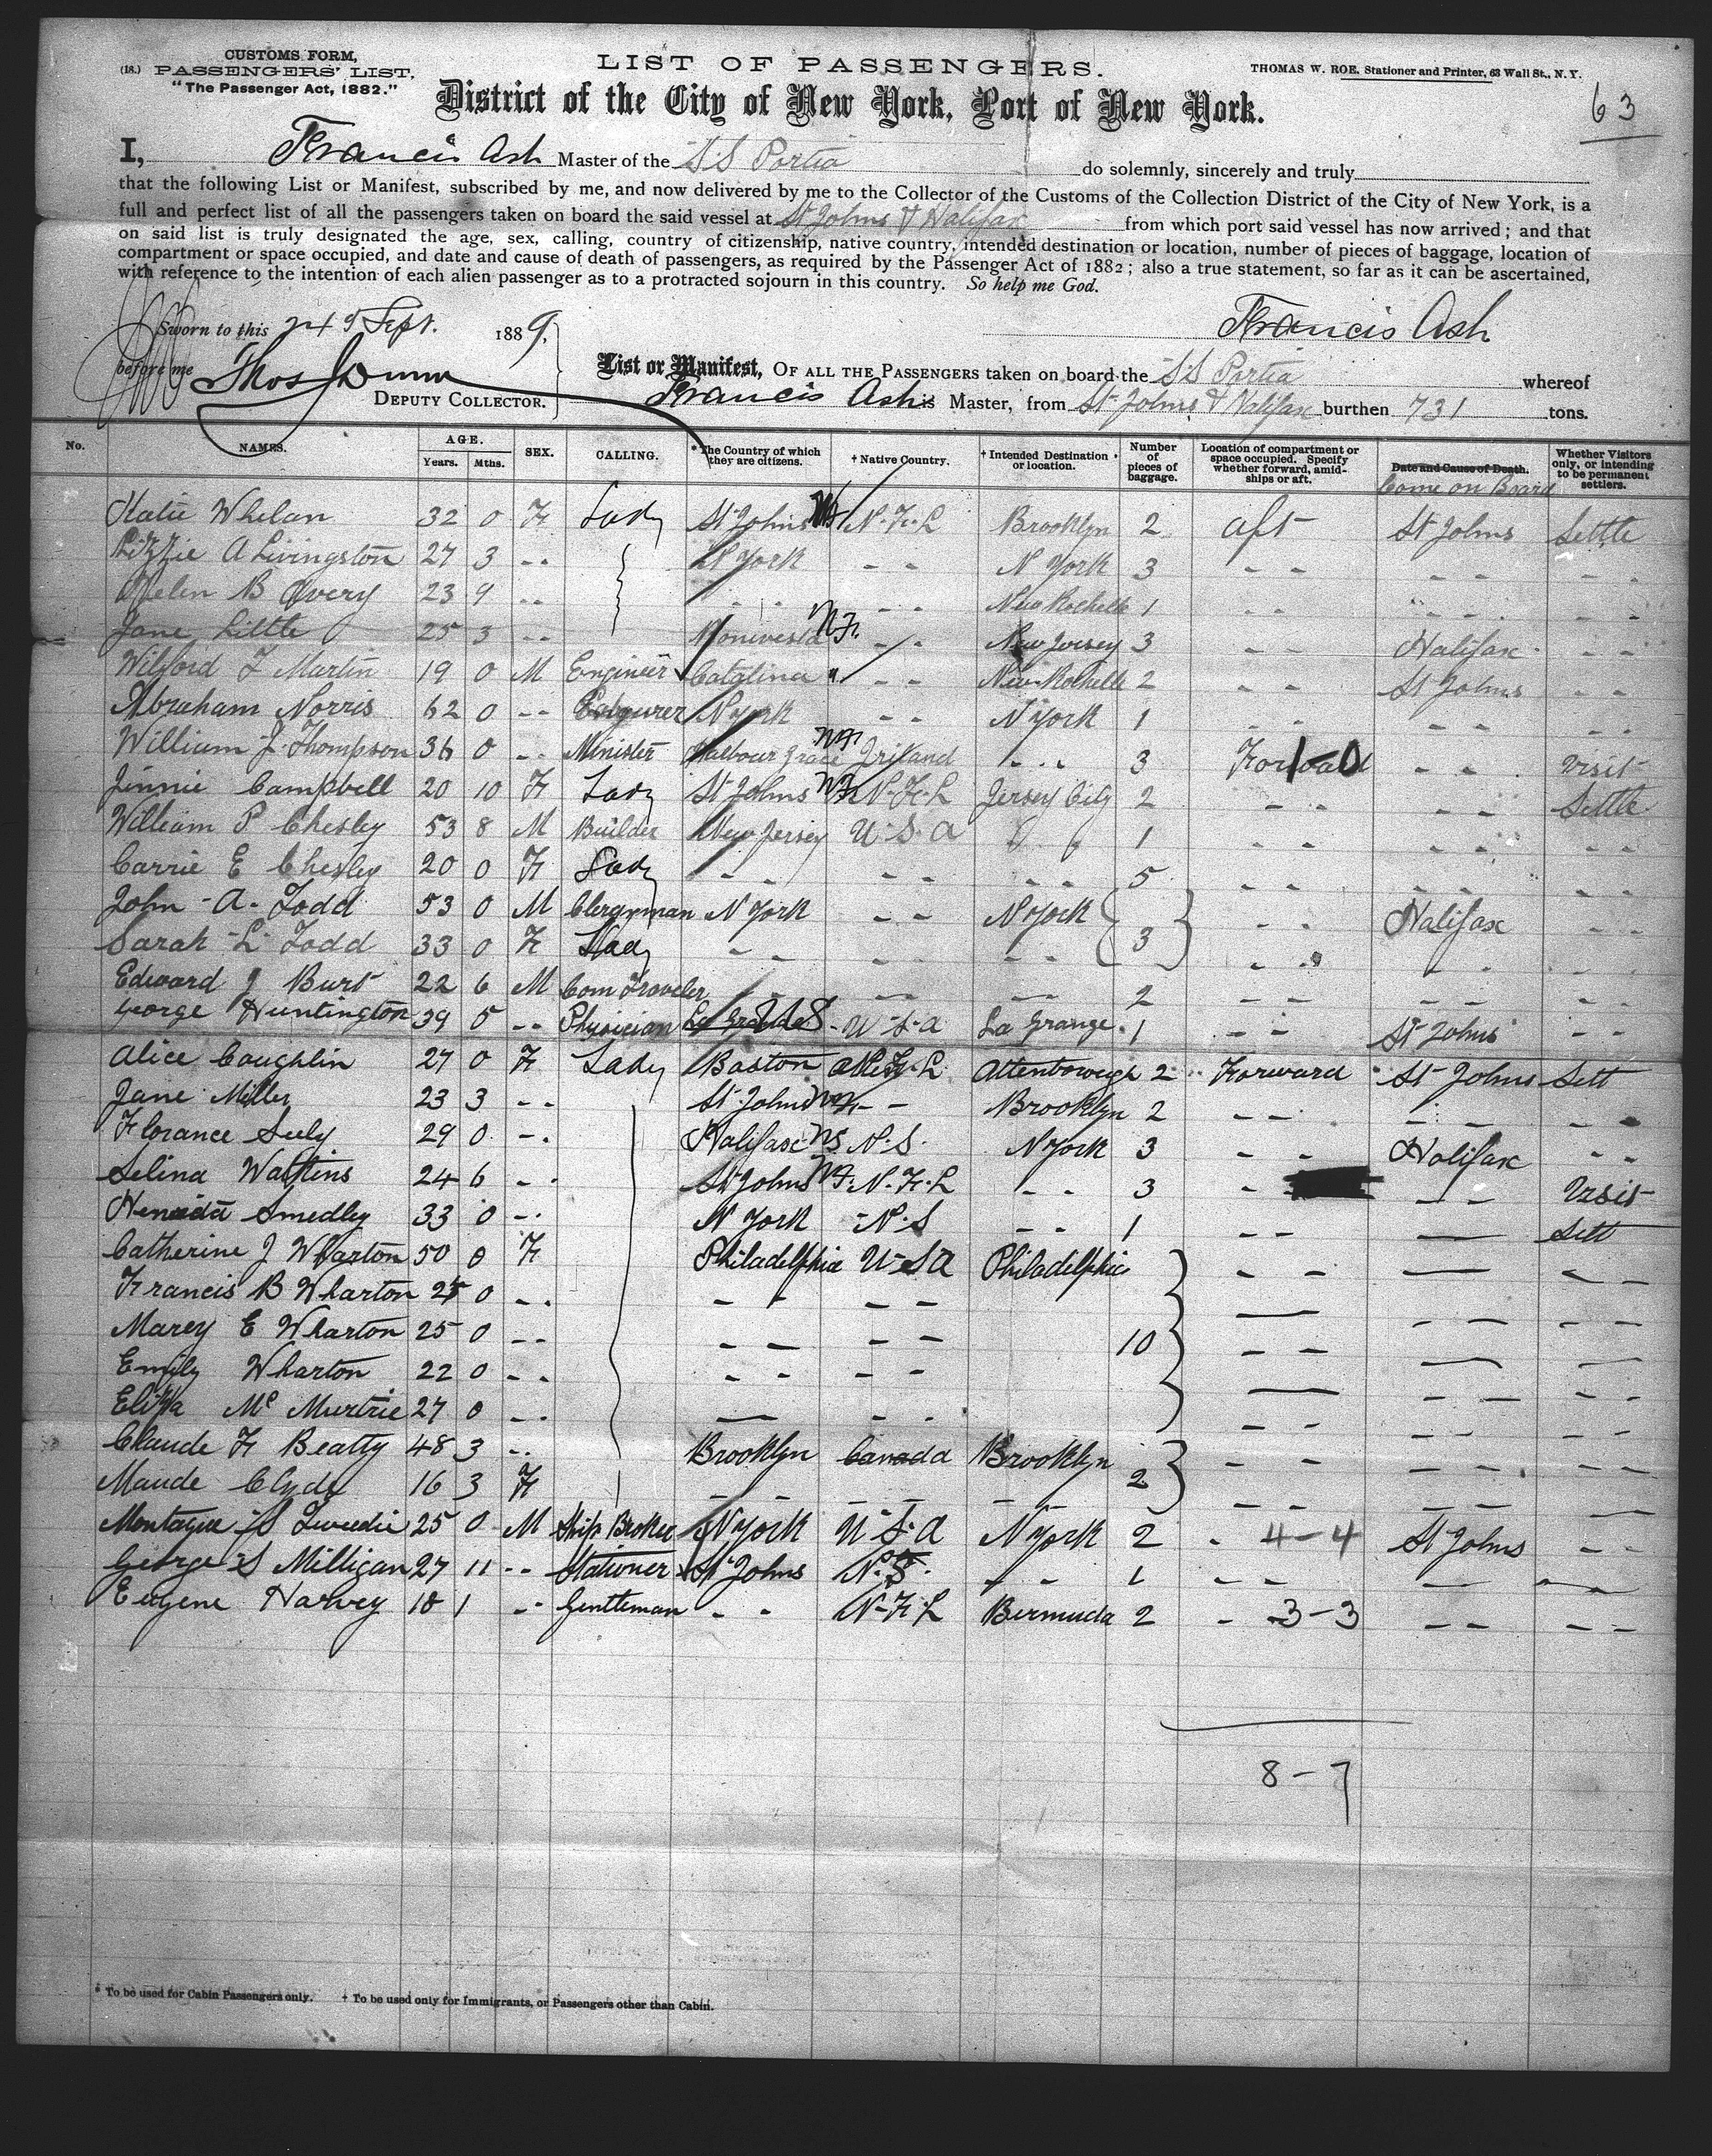 CUSTOMS FORM,
(18.) PASSENGERS' LIST.
"The Passenger Act, 1882."
LIST OF PASSENGERS.
THOMAS W. ROE, Stationer and Printer, 63 Wall St., N. Y.
63
District of the City of New York, Port of New York.
I, Francis Ash Master of the S.S Portia do solemnly, sincerely and truly
that the following List or Manifest, subscribed by me, and now delivered by me to the Collector of the Customs of the Collection District of the City of New York, is a
full and perfect list of all the passengers taken on board the said vessel at St Johns & Halifax from which port said vessel has now arrived; and that
on said list is truly designated the age, sex, calling, country of citizenship, native country, intended destination or location, number of pieces of baggage, location of
compartment or space occupied, and date and cause of death of passengers, as required by the Passenger Act of 1882; also a true statement, so far as it can be ascertained,
with reference to the intention of each alien passenger as to a protracted sojourn in this country. So help me God.
Sworn to this 24 Sept. 1889,
Francis Ash
before me Thos J Dunn
DEPUTY COLLECTOR.
List or Manifest, OF ALL THE PASSENGERS taken on board the S.S Portia whereof
Francis Ash is Master, from St Johns & Halifax burthen 731 tons.
No. NAMES. AGE. Years. Mths. SEX. CALLING. * The Country of which they are citizens. † Native Country. † Intended Destination or location. Number of pieces of baggage. Location of compartment or space occupied. Specify whether forward, amidships or aft. Date and Cause of Death. Come on Board Whether Visitors only, or intending to be permanent settlers.
Katie Whelan 32 0 F Lady St Johns NF N.F.L Brooklyn 2 aft St Johns Settle
Lizzie A Livingston 27 3 -- N York - - N York 3 - - - - - -
Helen B Avery 23 9 -- - - - - New Rochelle 1 - - - - - -
Jane Little 25 3 -- NF. - - New Jersey 3 - - Halifax - -
Wilford F Martin 19 0 M Engineer Catalina " - - New Rochelle 2 - - St Johns - -
Abraham Norris 62 0 -- N York - - N York 1 - - - - - -
William J. Thompson 36 0 -- Minister Harbour Grace NF Iriland - - 3 Forward 1-0 - - Visit
Jinnie Campbell 20 10 F Lady St Johns NF N.F.L Jersey City 2 - - - - Settle
William P Chesley 53 8 M Builder New Jersey U.S.A 1 - - - - - -
Carrie E Chesley 20 0 F Lady - - - - - - 5 - - - - - -
John A. Todd 53 0 M Clergyman N York - - N York 3 - - Halifax - -
Sarah L Todd 33 0 F Lady - - - - - - - - - - - -
Edward J Burt 22 6 M Com Traveler - - - - - - 2 - - - - - -
George Huntington 39 5 -- Physician U.S. U.S.A La Grange 1 - - St Johns - -
Alice Coughlin 27 0 F Lady Boston N.F.L Attenborough 2 Forward St Johns Sett
Jane Miller 23 3 -- St Johns NF - - Brooklyn 2 - - - - - -
Florance Seely 29 0 -- Halifax NS N.S. N York 3 - - Halifax - -
Selina Watkins 24 6 -- St Johns NF. N.F.L - - 3 - - - Visit
Smedley 33 0 -- N York N.S - - 1 - - - Sett
Catherine J Wharton 50 0 F Philadelphia U.S.A Philadelphia - - - - -
Francis B Wharton 25 0 -- - - - - - - - - -
Marey E Wharton 25 0 -- - - - - 10 - - - - - -
Emily Wharton 22 0 -- - - - - - - - - -
Eliza Mc Murtrie 27 0 -- - - - - - - - - -
Claude F Beatty 48 3 -- Brooklyn Canada Brooklyn 2 - - - - - -
Maude Clyde 16 3 F - - - - - - - - - - -
Montague S Tweedie 25 0 M Ship Broker N York U.S.A N York 2 - 4-4 St Johns - -
George S Milligan 27 11 -- Stationer St Johns N.S. - - 1 - - - - -
Eugene Harvey 18 1 -- Gentleman - - N-F.L Bermuda 2 - 3-3 - - - -
8-7
* To be used for Cabin Passengers only. † To be used only for Immigrants, or Passengers other than Cabin.